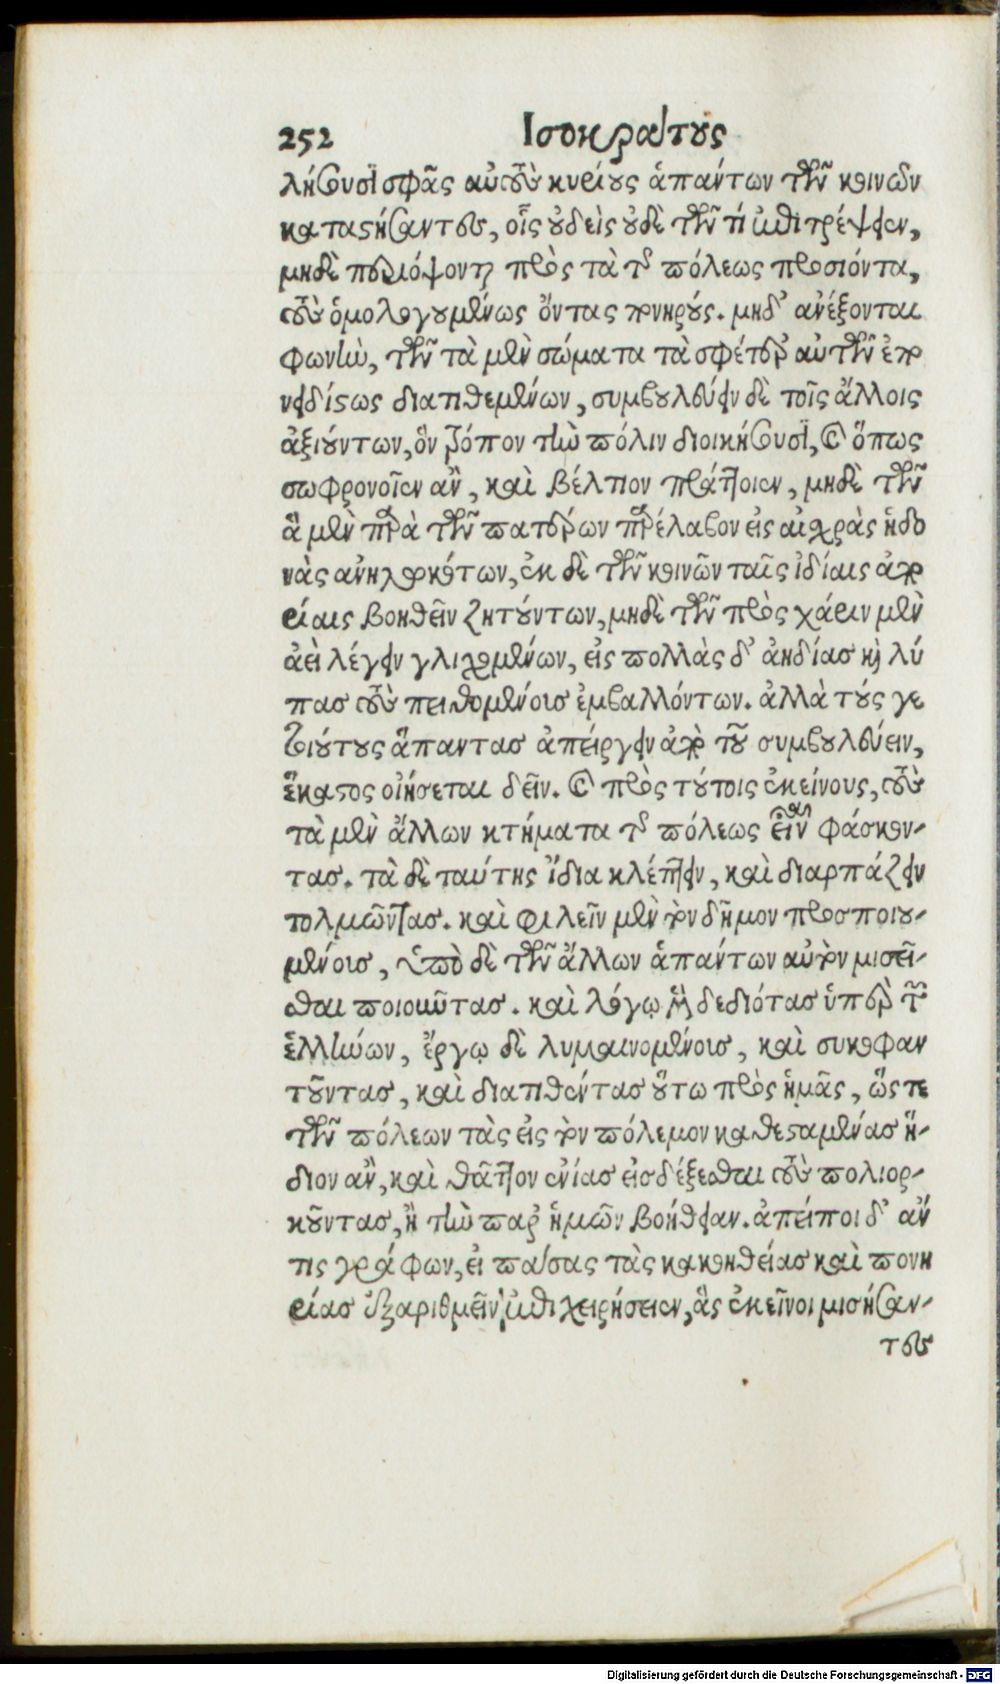 252 Ισοκράτους
λήσουσι σφᾶς αὐτοὺς κυρίους ἁπάντων τῶν κοινῶν
καταστήσαντες, οἷς οὐδεὶς οὐδὲ τῶν ἐπιτρέψειεν,
μηδὲ περιόψονται πρὸς τὰ τῆς πόλεως προσιόντα,
τοὺς ὁμολογουμένως ὄντας πονηρούς. μηδ' ἀνέξονται
φωνὴν, τῶν τὰ μὲν σώματα τὰ σφέτερ' αὐτῶν ἐπο
νειδίστως διατιθεμένων, συμβουλεύειν δὲ τοῖς ἄλλοις
ἀξιούντων, ὃν τρόπον τὴν πόλιν διοικήσουσι, καὶ ὅπως
σωφρονοῖεν ἂν, καὶ βέλτιον πράττοιεν, μηδὲ τῶν
ἃ μὲν παρὰ τῶν πατέρων παρέλαβον εἰς αἰσχρὰς ἡδο
νὰς ἀνηλωκότων, ἐκ δὲ τῶν κοινῶν ταῖς ἰδίαις ἀπο
ρίαις βοηθεῖν ζητούντων, μηδὲ τῶν πρὸς χάριν μὲν
ἀεὶ λέγειν γλιχομένων, εἰς πολλὰς δ' ἀηδίας καὶ λύ
πας τοὺς πειθομένοις ἐμβαλλόντων. ἀλλὰ τούς γε
τοιούτους ἅπαντας ἀπείργειν ἀπὸ τοῦ συμβουλεύειν,
ἕκαστος οἰήσεται δεῖν. καὶ πρὸς τούτοις ἐκείνους, τοὺς
τὰ μὲν ἄλλων κτήματα τῆς πόλεως εἶναι φάσκον-
τας. τὰ δὲ ταύτης ἴδια κλέπτειν, καὶ διαρπάζειν
τολμῶντας. καὶ φιλεῖν μὲν τὸν δῆμον προσποιου-
μένοις, ὑπὸ δὲ τῶν ἄλλων ἁπάντων αὐτὸν μισεῖ-
σθαι ποιοῦντας. καὶ λόγῳ μὲν δεδιότας ὑπὲρ τῶν
ἑλλήνων, ἔργῳ δὲ λυμαινομένοις, καὶ συκοφαν
τοῦντας, καὶ διατιθέντας οὕτω πρὸς ἡμᾶς, ὥστε
τῶν πόλεων τὰς εἰς τὸν πόλεμον καθεσταμένας ἥ-
διον ἂν, καὶ θᾶττον ἐνίας εἰσδέξεσθαι τοὺς πολιορ-
κοῦντας, ἢ τὴν παρ' ἡμῶν βοήθειαν. ἀπείποι δ' ἄν
τις γράφων, εἰ πάσας τὰς κακοηθείας καὶ πονη
ρίας ἐξαριθμεῖν ἐπιχειρήσειεν, ἃς ἐκεῖνοι μισήσαν-
τες
Digitalisierung gefördert durch die Deutsche Forschungsgemeinschaft - DFG